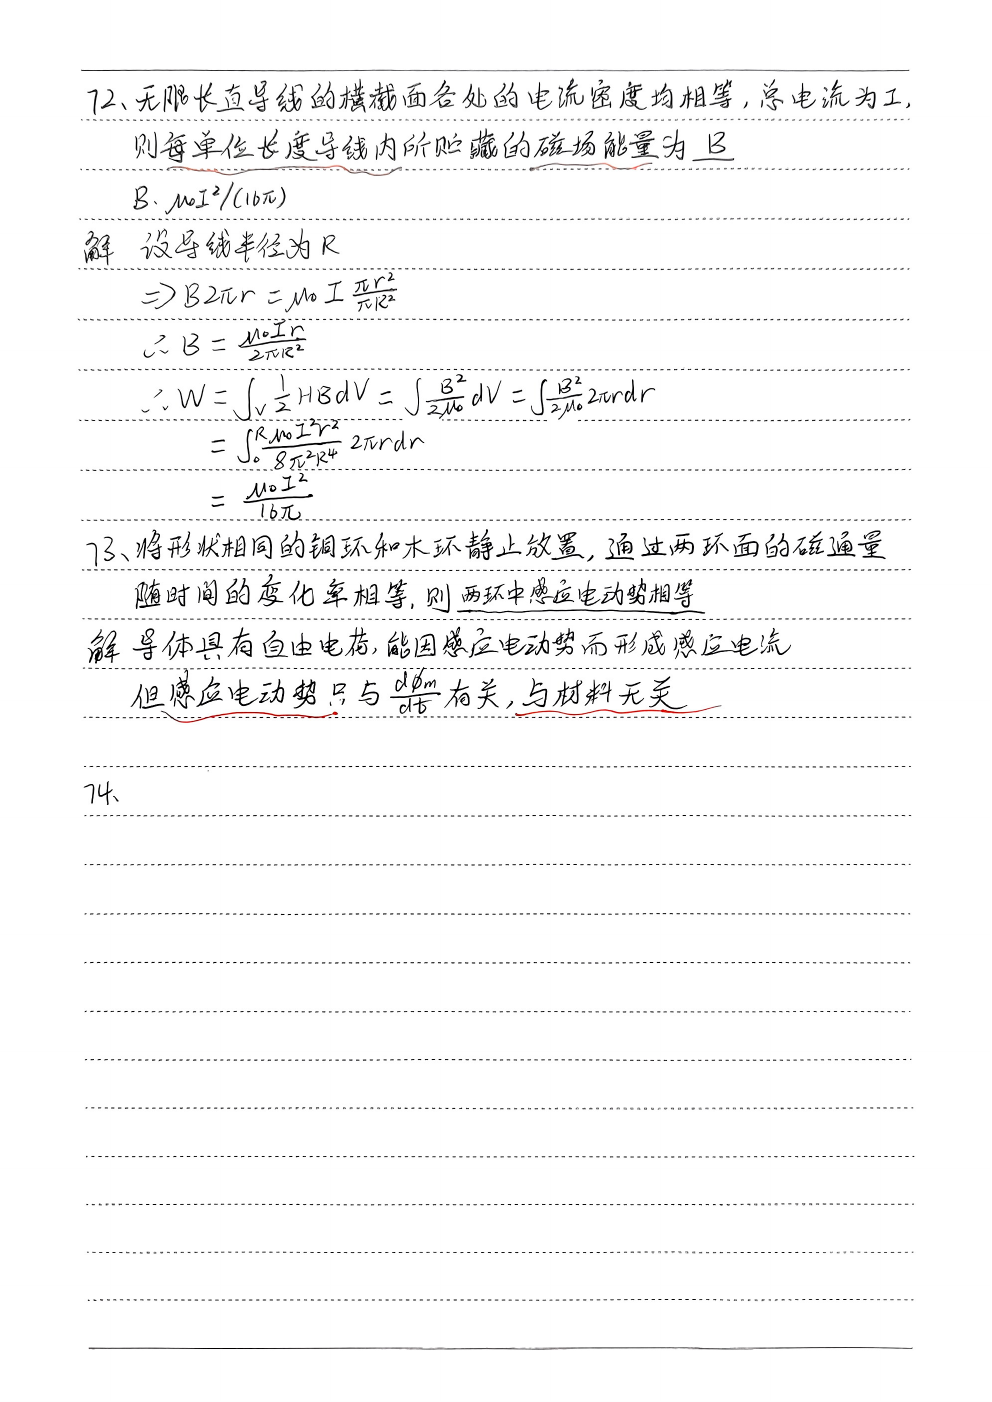 72、无限长直导线的横截面各处的电流密度均相等，总电流为I，
则每单位长度导线内所贮藏的磁场能量为 B
B. μ₀I²/(16π)
解 设导线半径为R
=> B2πr = μ₀ I πr²/πR²
∴ B = μ₀Ir/2πR²
∴ W = ∫_V 1/2 HBdV = ∫ B²/2μ₀ dV = ∫ B²/2μ₀ 2πrdr
= ∫₀ᴿ μ₀I²r²/8π²R⁴ 2πrdr
= μ₀I²/16π
73、将形状相同的铜环和木环静止放置，通过两环面的磁通量
随时间的变化率相等，则两环中感应电动势相等
解 导体具有自由电荷，能因感应电动势而形成感应电流
但感应电动势只与 dφm/dt 有关，与材料无关
74、